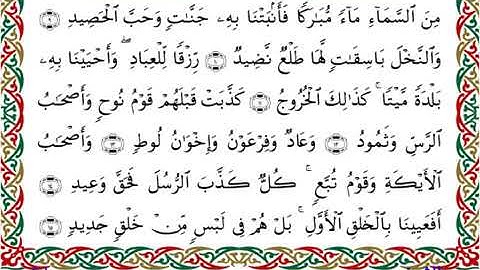 مِنَ السَّمَاءِ مَاءً مُّبَارَكًا فَأَنبَتْنَا بِهِ جَنَّاتٍ وَحَبَّ الْحَصِيدِ ۝٩
وَالنَّخْلَ بَاسِقَاتٍ لَّهَا طَلْعٌ نَّضِيدٌ ۝١٠ رِزْقًا لِّلْعِبَادِ ۖ وَأَحْيَيْنَا بِهِ
بَلْدَةً مَّيْتًا ۚ كَذَٰلِكَ الْخُرُوجُ ۝١١ كَذَّبَتْ قَبْلَهُمْ قَوْمُ نُوحٍ وَأَصْحَابُ
الرَّسِّ وَثَمُودُ ۝١٢ وَعَادٌ وَفِرْعَوْنُ وَإِخْوَانُ لُوطٍ ۝١٣ وَأَصْحَابُ
الْأَيْكَةِ وَقَوْمُ تُبَّعٍ ۚ كُلٌّ كَذَّبَ الرُّسُلَ فَحَقَّ وَعِيدِ ۝١٤
أَفَعَيِينَا بِالْخَلْقِ الْأَوَّلِ ۚ بَلْ هُمْ فِي لَبْسٍ مِّنْ خَلْقٍ جَدِيدٍ ۝١٥